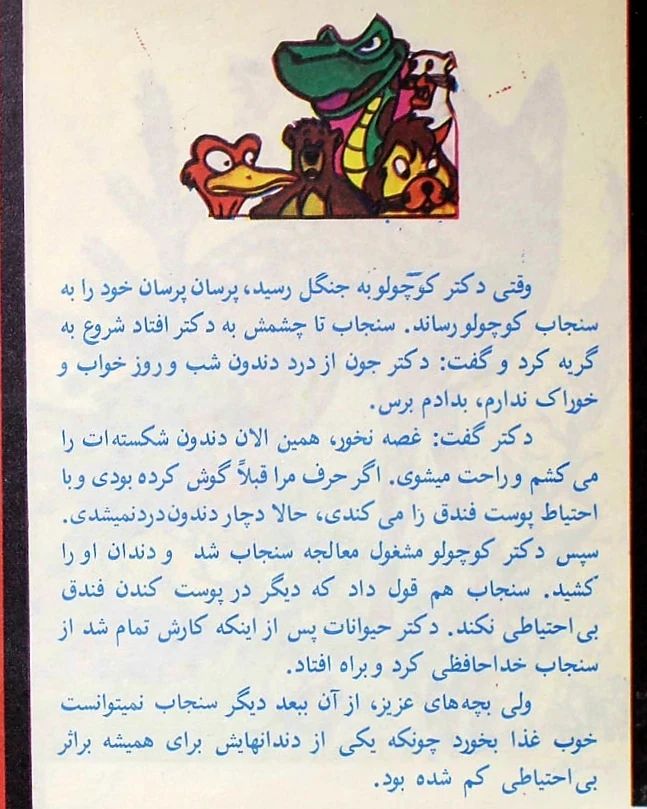 وقتی دکتر کوچولو به جنگل رسید، پرسان پرسان خود را به
سنجاب کوچولو رساند. سنجاب تا چشمش به دکتر افتاد شروع به
گریه کرد و گفت: دکتر جون از درد دندون شب و روز خواب و
خوراک ندارم، بدادم برس.
دکتر گفت: غصه نخور، همین الان دندون شکسته‌ات را
می‌کشم و راحت میشوی. اگر حرف مرا قبلاً گوش کرده بودی و با
احتیاط پوست فندق را می‌کندی، حالا دچار دندون‌درد نمیشدی.
سپس دکتر کوچولو مشغول معالجه سنجاب شد و دندان او را
کشید. سنجاب هم قول داد که دیگر در پوست کندن فندق
بی‌احتیاطی نکند. دکتر حیوانات پس از اینکه کارش تمام شد از
سنجاب خداحافظی کرد و براه افتاد.
ولی بچه‌های عزیز، از آن ببعد دیگر سنجاب نمیتوانست
خوب غذا بخورد چونکه یکی از دندانهایش برای همیشه براثر
بی‌احتیاطی کم شده بود.